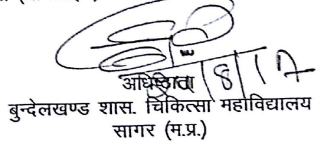 अधिष्ठाता
बुन्देलखण्ड शास. चिकित्सा महाविद्यालय
सागर (म.प्र.)